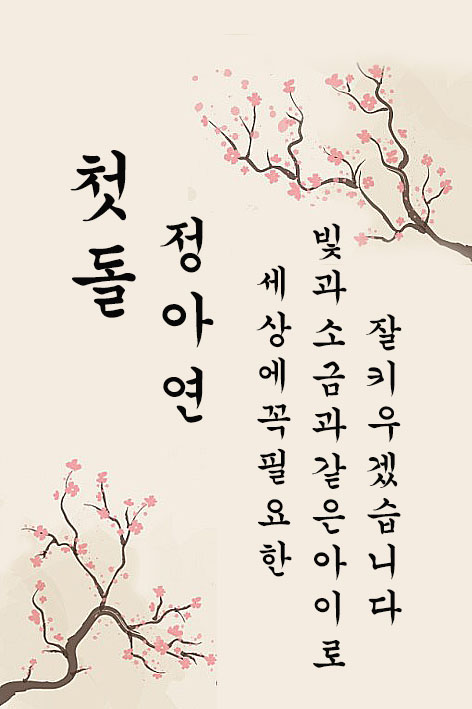 첫돌
정아연
세상에꼭필요한
빛과소금과같은아이로
잘키우겠습니다